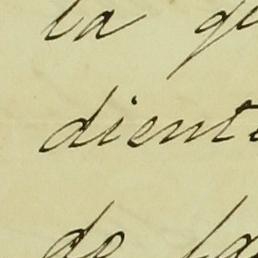 la
diente
de la